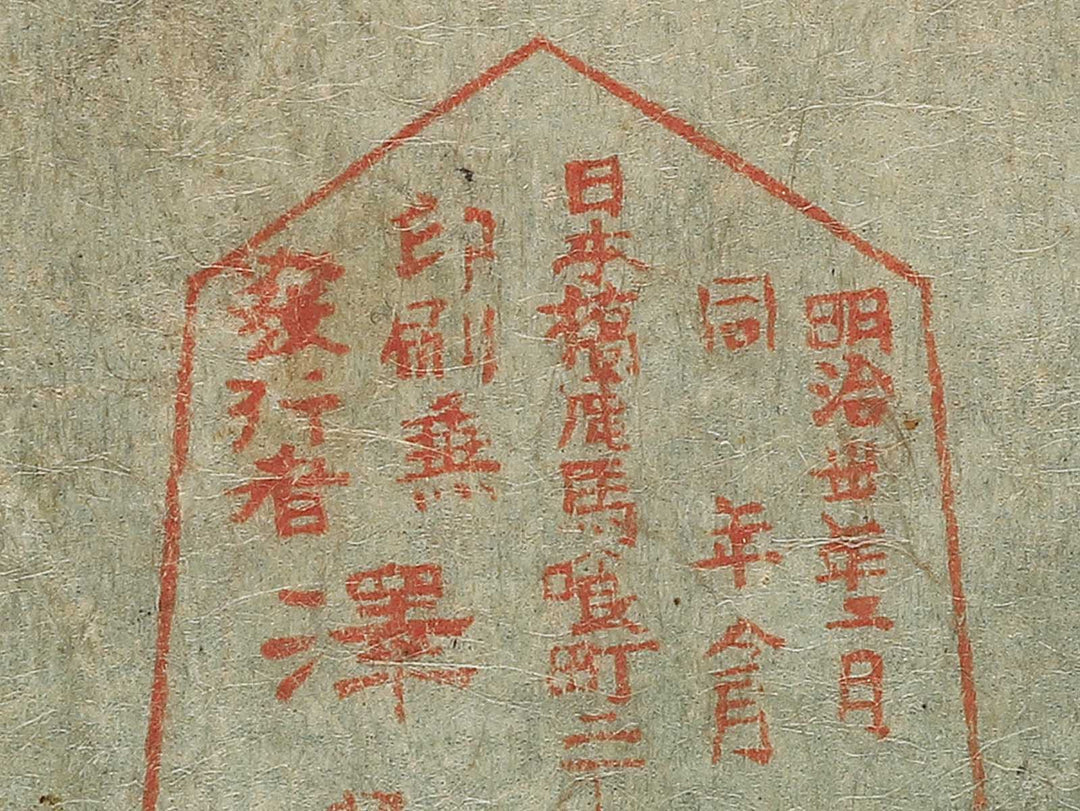 明治丗年
同 年 月
日本橋區馬喰町三丁
印刷兼
發行者
澤